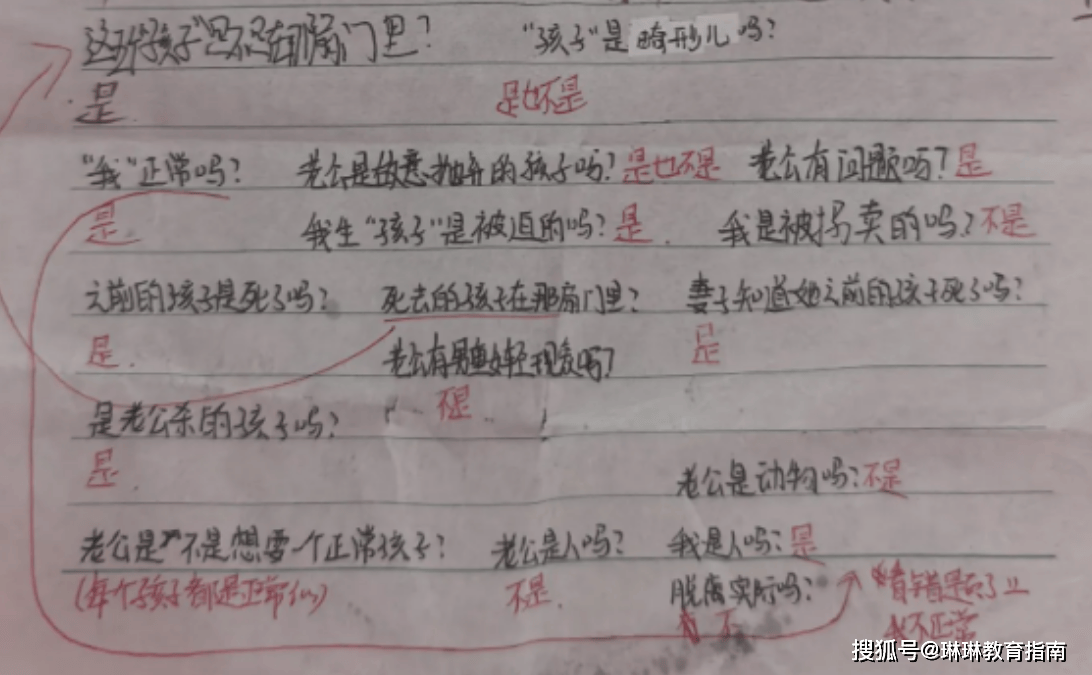 这些"孩子"是不是在那扇门里? "孩子"是畸形儿吗?
是. 是也不是
"我"正常吗? 老公是故意抛弃的孩子吗? 是也不是 老公有问题吗? 是
是. 我生"孩子"是被迫的吗? 是. 我是被拐卖的吗? 不是
之前的孩子是死了吗? 死去的孩子在那扇门里? 妻子知道她之前的孩子死了吗?
是. 老公有 吗? 是
是老公杀的孩子吗? 不是
是. 老公是动物吗? 不是
老公是不是想要一个正常孩子? 老公是人吗? 我是人吗? 是
(每个孩子都是正常的) 不是. 脱离实际吗?
不正常
搜狐号@琳琳教育指南